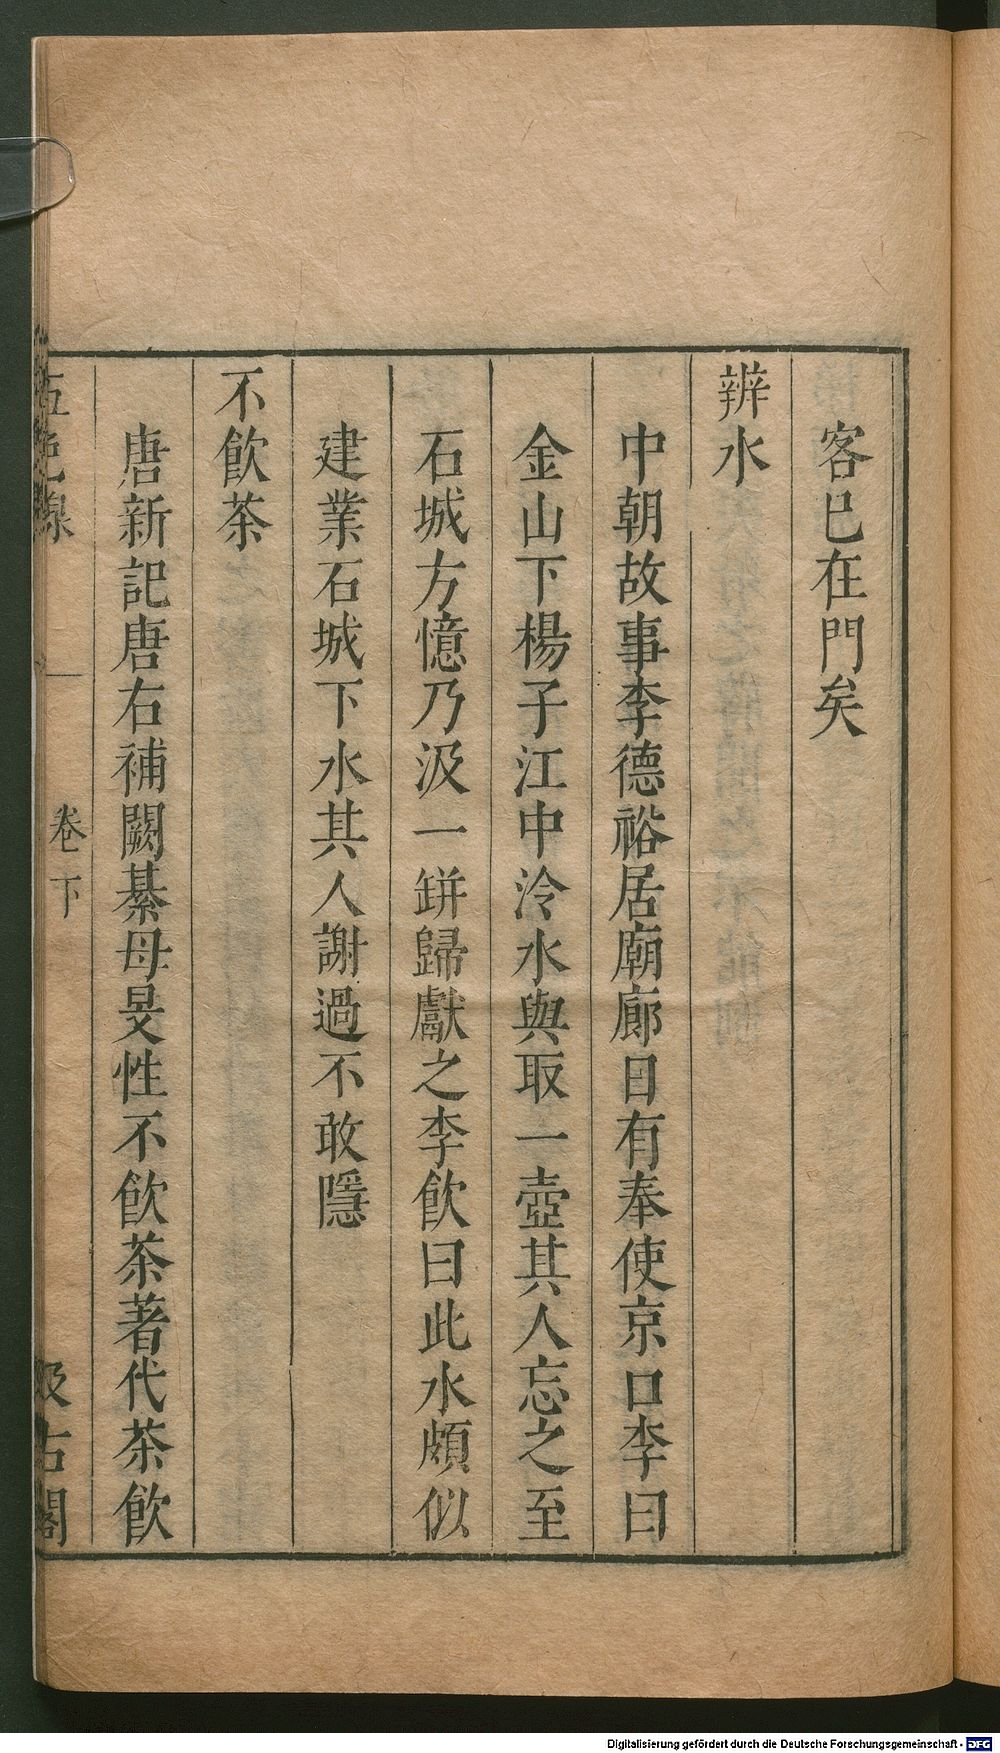 客已在門矣
辨水
中朝故事李德裕居廟廊日有奉使京口李曰
金山下楊子江中泠水與取一壺其人忘之至
石城方憶乃汲一缾歸獻之李飲曰此水頗似
建業石城下水其人謝過不敢隱
不飲茶
唐新記唐右補闕綦母旻性不飲茶著代茶飲
五色線
卷下
汲古閣
Digitalisierung gefördert durch die Deutsche Forschungsgemeinschaft - DFG